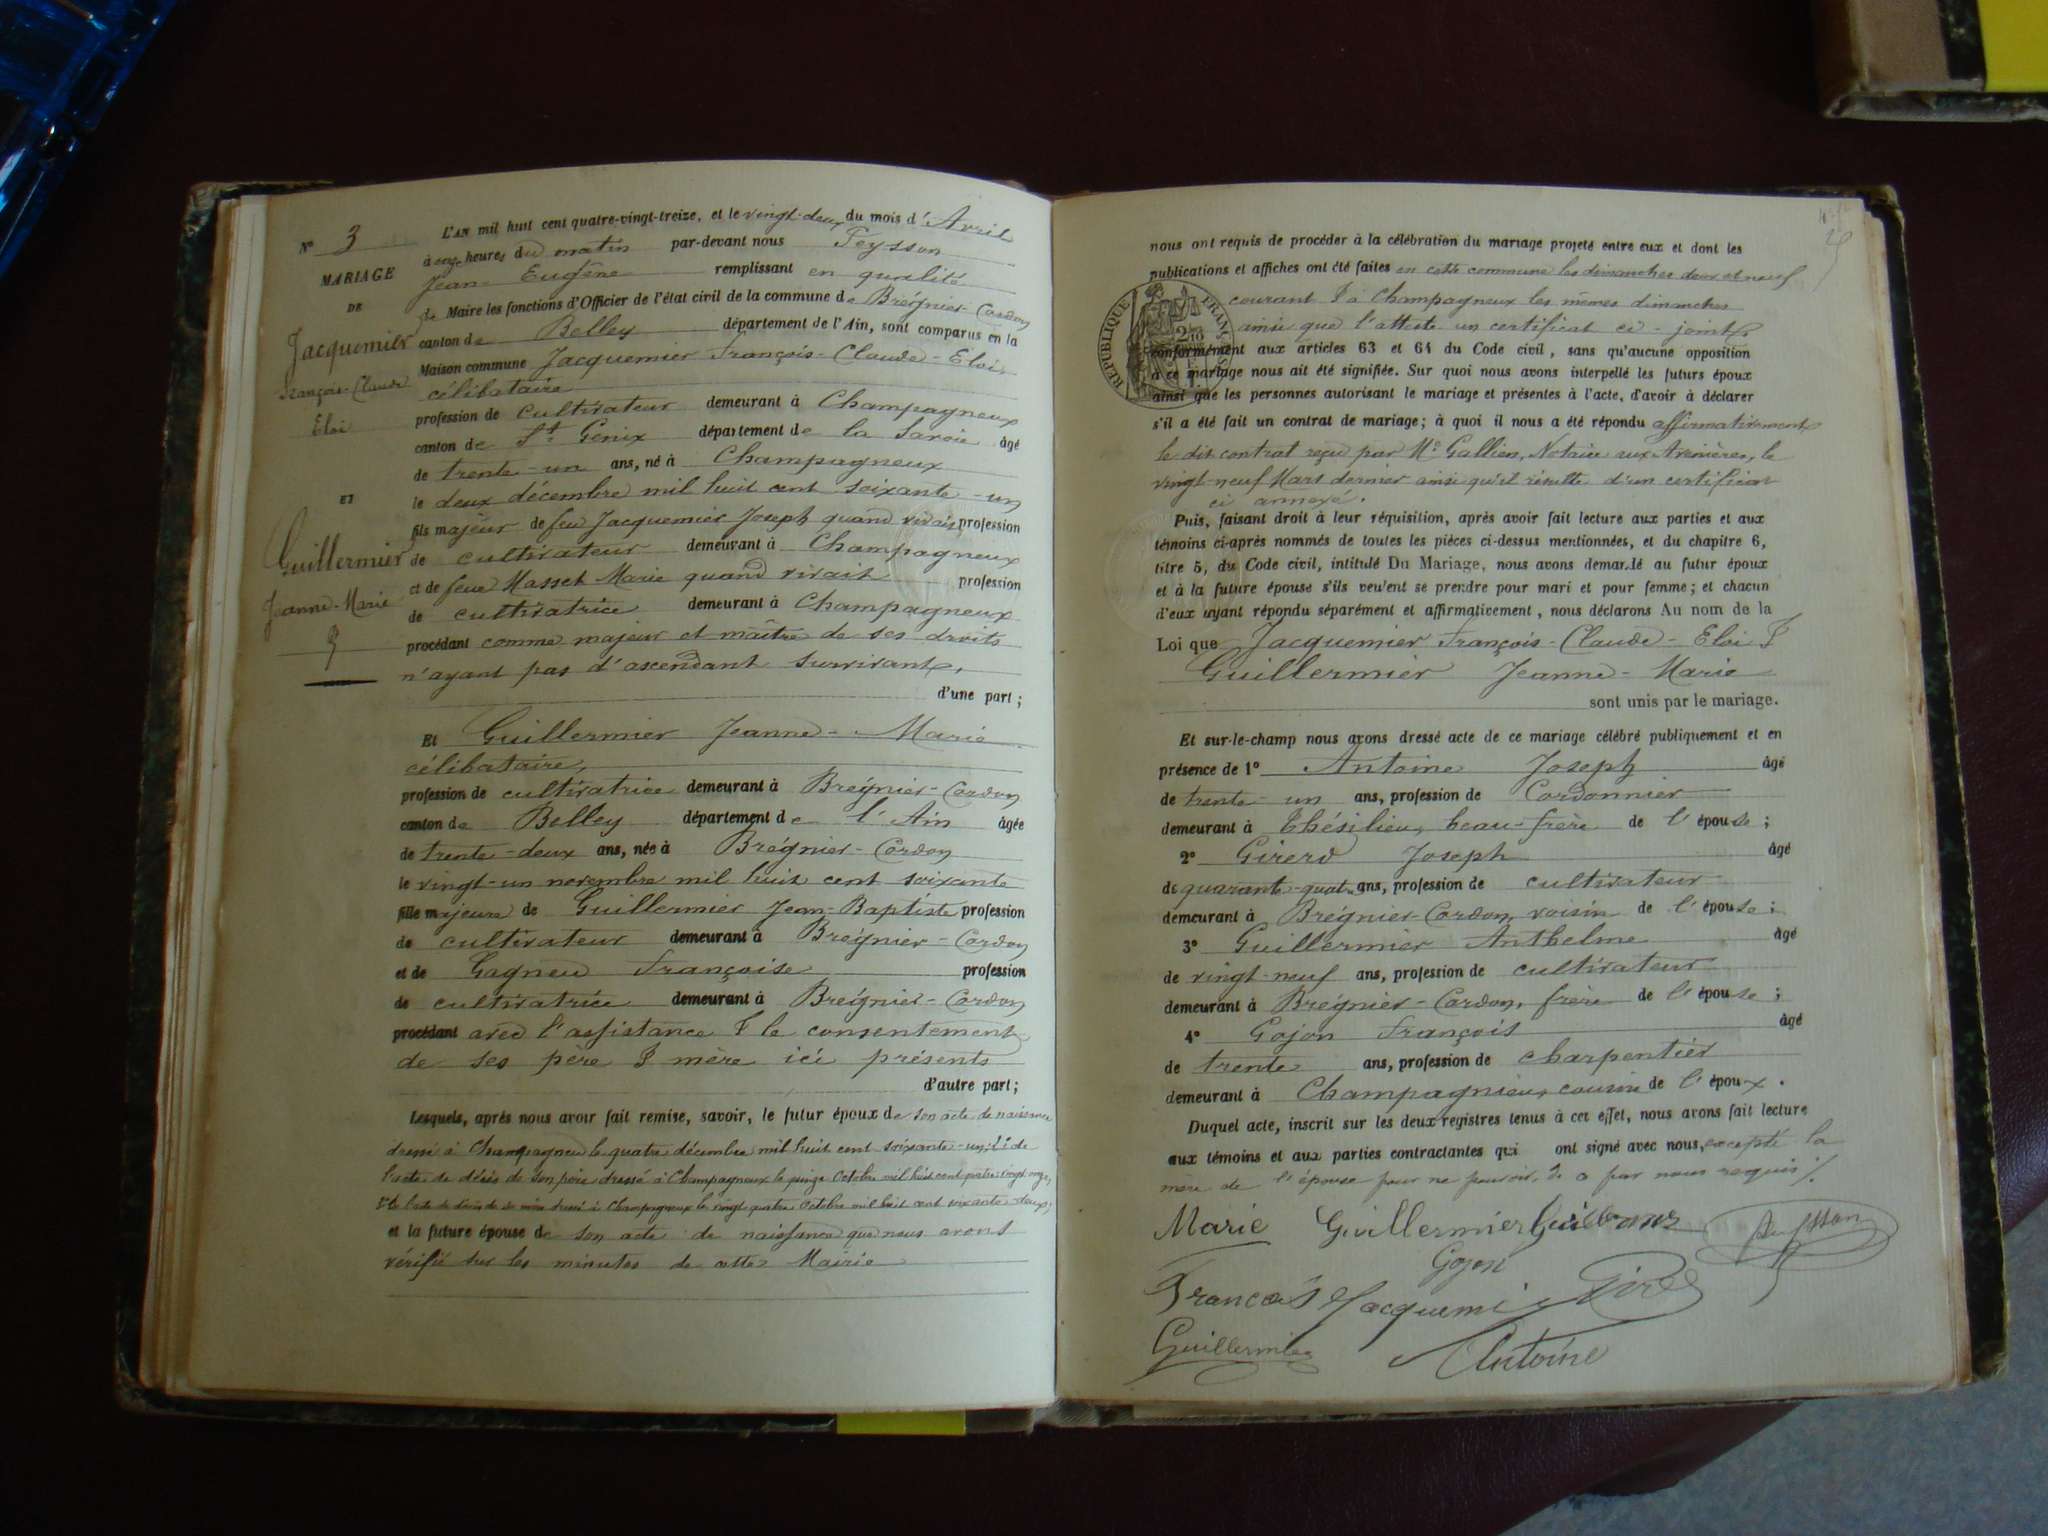 N° 3
MARIAGE
DE
Jacquemier
François-Claude
Eloi
ET
Guillermier
Jeanne-Marie
L'AN mil huit cent quatre-vingt-treize, et le vingt-deux du mois d'Avril
à onze heures du matin par-devant nous Peysson
Jean-Eugène remplissant en qualité
de Maire les fonctions d'Officier de l'état civil de la commune de Brégnier-Cordon
canton de Belley département de l'Ain, sont comparus en la
Maison commune Jacquemier François-Claude-Eloi,
célibataire
profession de cultivateur demeurant à Champagneux
canton de St Genix département de la Savoie âgé
de trente-un ans, né à Champagneux
le deux décembre mil huit cent soixante-un
fils majeur de feu Jacquemier Joseph quand vivait profession
de cultivateur demeurant à Champagneux
et de feue Masset Marie quand vivait profession
de cultivatrice demeurant à Champagneux
procédant comme majeur et maître de ses droits
n'ayant pas d'ascendant survivant,
d'une part ;
Et Guillermier Jeanne-Marie
célibataire,
profession de cultivatrice demeurant à Brégnier-Cordon
canton de Belley département de l'Ain âgée
de trente-deux ans, née à Brégnier-Cordon
le vingt-un novembre mil huit cent soixante
fille majeure de Guillermier Jean-Baptiste profession
de cultivateur demeurant à Brégnier-Cordon
et de Gagneu Françoise profession
de cultivatrice demeurant à Brégnier-Cordon
procédant avec l'assistance & le consentement
de ses père & mère ici présents
d'autre part ;
Lesquels, après nous avoir fait remise, savoir, le futur époux de son acte de naissance
dressé à Champagneux le quatre décembre mil huit cent soixante-un; 2° de
l'acte de décès de son père dressé à Champagneux le quinze Octobre mil huit cent quatre vingt onze,
3° de l'acte de décès de sa mère dressé à Champagneux le vingt quatre Octobre mil huit cent soixante-deux;
et la future épouse de son acte de naissance que nous avons
vérifié sur les minutes de cette Mairie
nous ont requis de procéder à la célébration du mariage projeté entre eux et dont les
publications et affiches ont été faites en cette commune les dimanches deux et neuf
courant & à Champagneux les mêmes dimanches
ainsi que l'atteste un certificat ci-joint
RÉPUBLIQUE FRANÇAISE
conformément aux articles 63 et 64 du Code civil, sans qu'aucune opposition
à ce mariage nous ait été signifiée. Sur quoi nous avons interpellé les futurs époux
ainsi que les personnes autorisant le mariage et présentes à l'acte, d'avoir à déclarer
s'il a été fait un contrat de mariage ; à quoi il nous a été répondu affirmativement
le dit contrat reçu par Me Gallien, Notaire aux Avenières, le
vingt-neuf Mars dernier ainsi qu'il résulte d'un certificat
ci annexé.
Puis, faisant droit à leur réquisition, après avoir fait lecture aux parties et aux
témoins ci-après nommés de toutes les pièces ci-dessus mentionnées, et du chapitre 6,
titre 5, du Code civil, intitulé Du Mariage, nous avons demandé au futur époux
et à la future épouse s'ils veulent se prendre pour mari et pour femme ; et chacun
d'eux ayant répondu séparément et affirmativement, nous déclarons Au nom de la
Loi que Jacquemier François-Claude-Eloi &
Guillermier Jeanne-Marie
sont unis par le mariage.
Et sur-le-champ nous avons dressé acte de ce mariage célébré publiquement et en
présence de 1° Antoine Joseph âgé
de trente-un ans, profession de Cordonnier
demeurant à Thésilieu, beau-frère de l'épouse ;
2° Girerd Joseph âgé
de quarante-quatre ans, profession de cultivateur
demeurant à Brégnier-Cordon, voisin de l'épouse ;
3° Guillermier Anthelme âgé
de vingt-neuf ans, profession de cultivateur
demeurant à Brégnier-Cordon, frère de l'épouse ;
4° Gojon François âgé
de trente ans, profession de charpentier
demeurant à Champagnieu, cousin de l'époux.
Duquel acte, inscrit sur les deux registres tenus à cet effet, nous avons fait lecture
aux témoins et aux parties contractantes qui ont signé avec nous, excepté la
mère de l'épouse pour ne pouvoir, de a par nous requis ./.
Marie Guillermier Peysson
Gojon
François Jacquemier
Guillermier Antoine